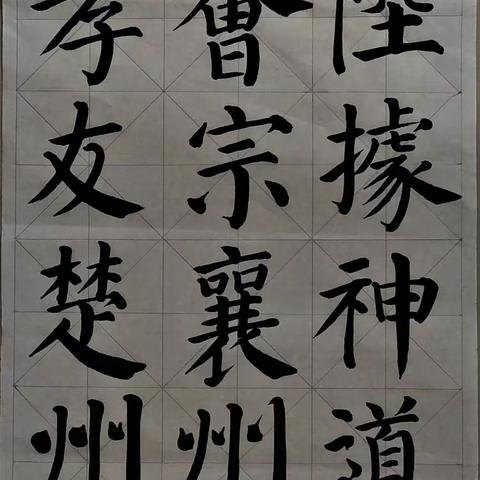 陸據神道
會宗襄州
孝友楚州